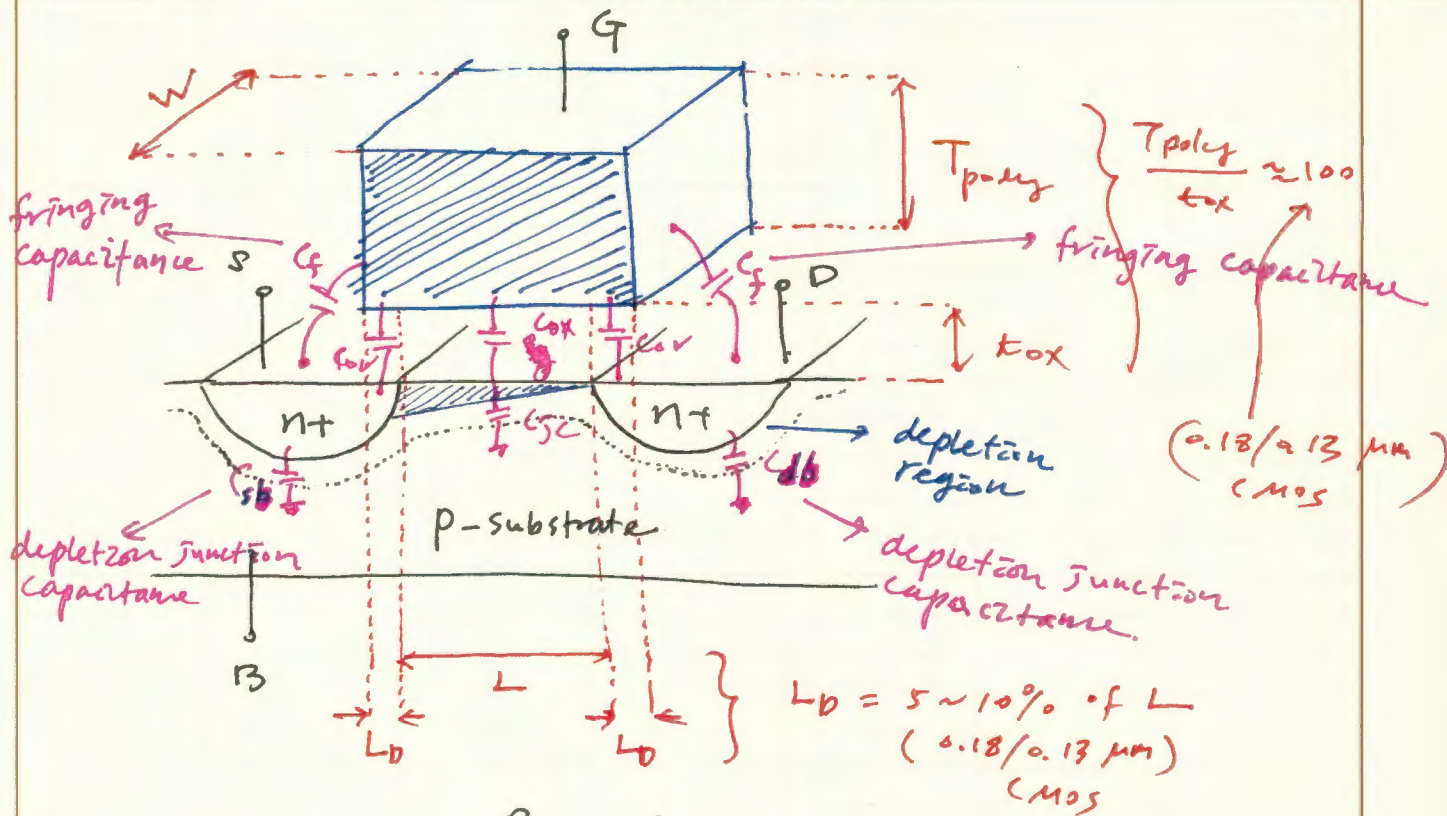 G
W
Tpoly
Tpoly / tox ≈ 100
fringing
capacitance
S
Cf
Cf
D
fringing capacitance
Cov
Cox
Cov
tox
n+
Cjc
n+
depletion
region
(0.18/0.13 μm)
CMOS
Csb
Cdb
p-substrate
depletion junction
capacitance
depletion junction
capacitance.
B
L
LD
LD
LD = 5 ~ 10% of L
(0.18/0.13 μm)
CMOS